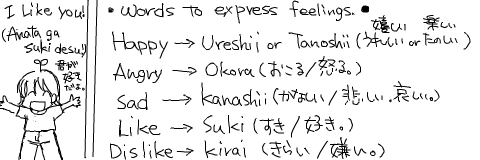 I Like you!
(Anata ga
suki desu!)
君が
好き
だよ。
• Words to express feelings. •
嬉しい 楽しい
Happy → Ureshii or Tanoshii (うれしい or たのしい)
Angry → Okoru (おこる/怒る。)
Sad → kanashii (かなしい/悲しい。哀しい。)
Like → Suki (すき/好き。)
Dislike → kirai (きらい/嫌い。)